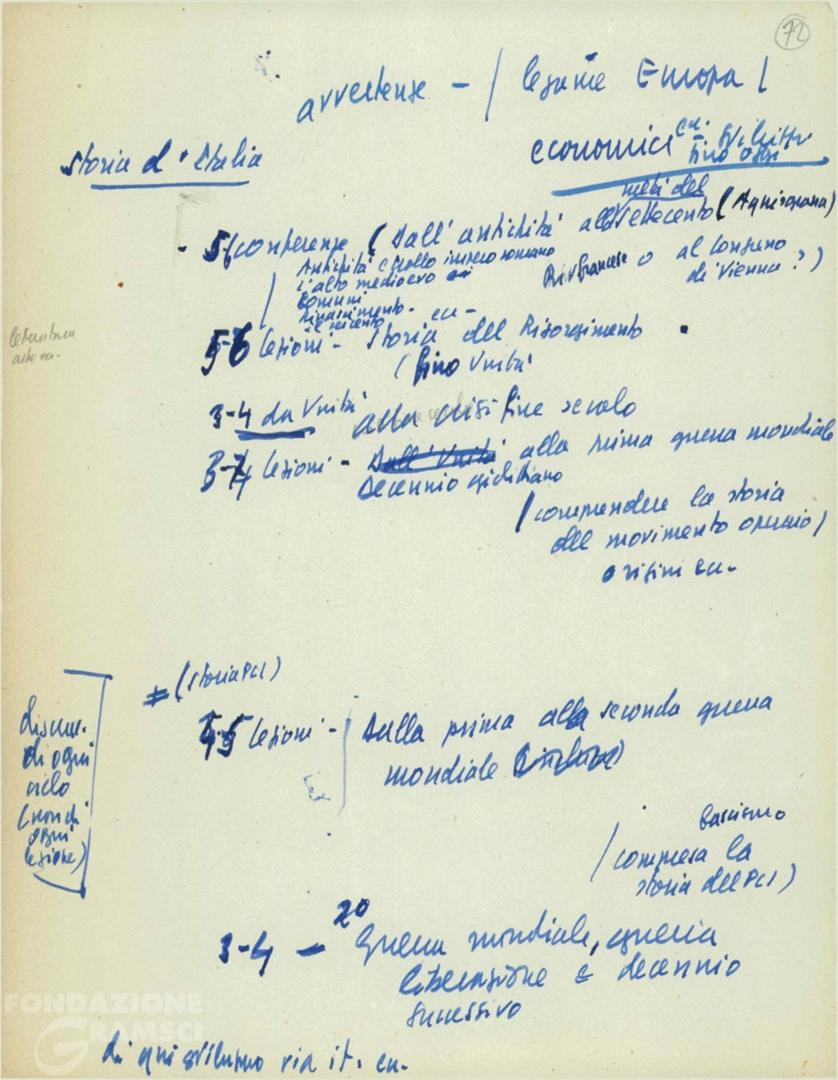 72
avvertenze - / legame Europa /
storia d'Italia
economici ecc.
fino oggi
metà del
- 5-6 conferenze ( Dall'antichità al Settecento ( Aquisgrana )
Antichità e crollo impero romano
Riv francese o al Congresso
di Vienna ? )
l'alto medioevo
Comuni
Rinascimento - ecc -
il seicento
letteratura
arte ecc.
5-6 lezioni - Storia del Risorgimento
( fino Unità
3-4 da Unità alla crisi fine secolo
3-4 lezioni - Dall'Unità alla prima guerra mondiale
Decennio giolittiano
( comprendere la storia
del movimento operaio )
origini ecc.
# ( storia PCI )
4-5 lezioni - Dalla prima alla seconda guerra
mondiale
discuss.
di ogni
ciclo
( non di
ogni
lezione )
fascismo
( compresa la
storia del PCI )
3-4 - 2a Guerra mondiale, guerra
liberazione e decennio
successivo
FONDAZIONE
GRAMSCI
di qui sviluppo via it. ecc.